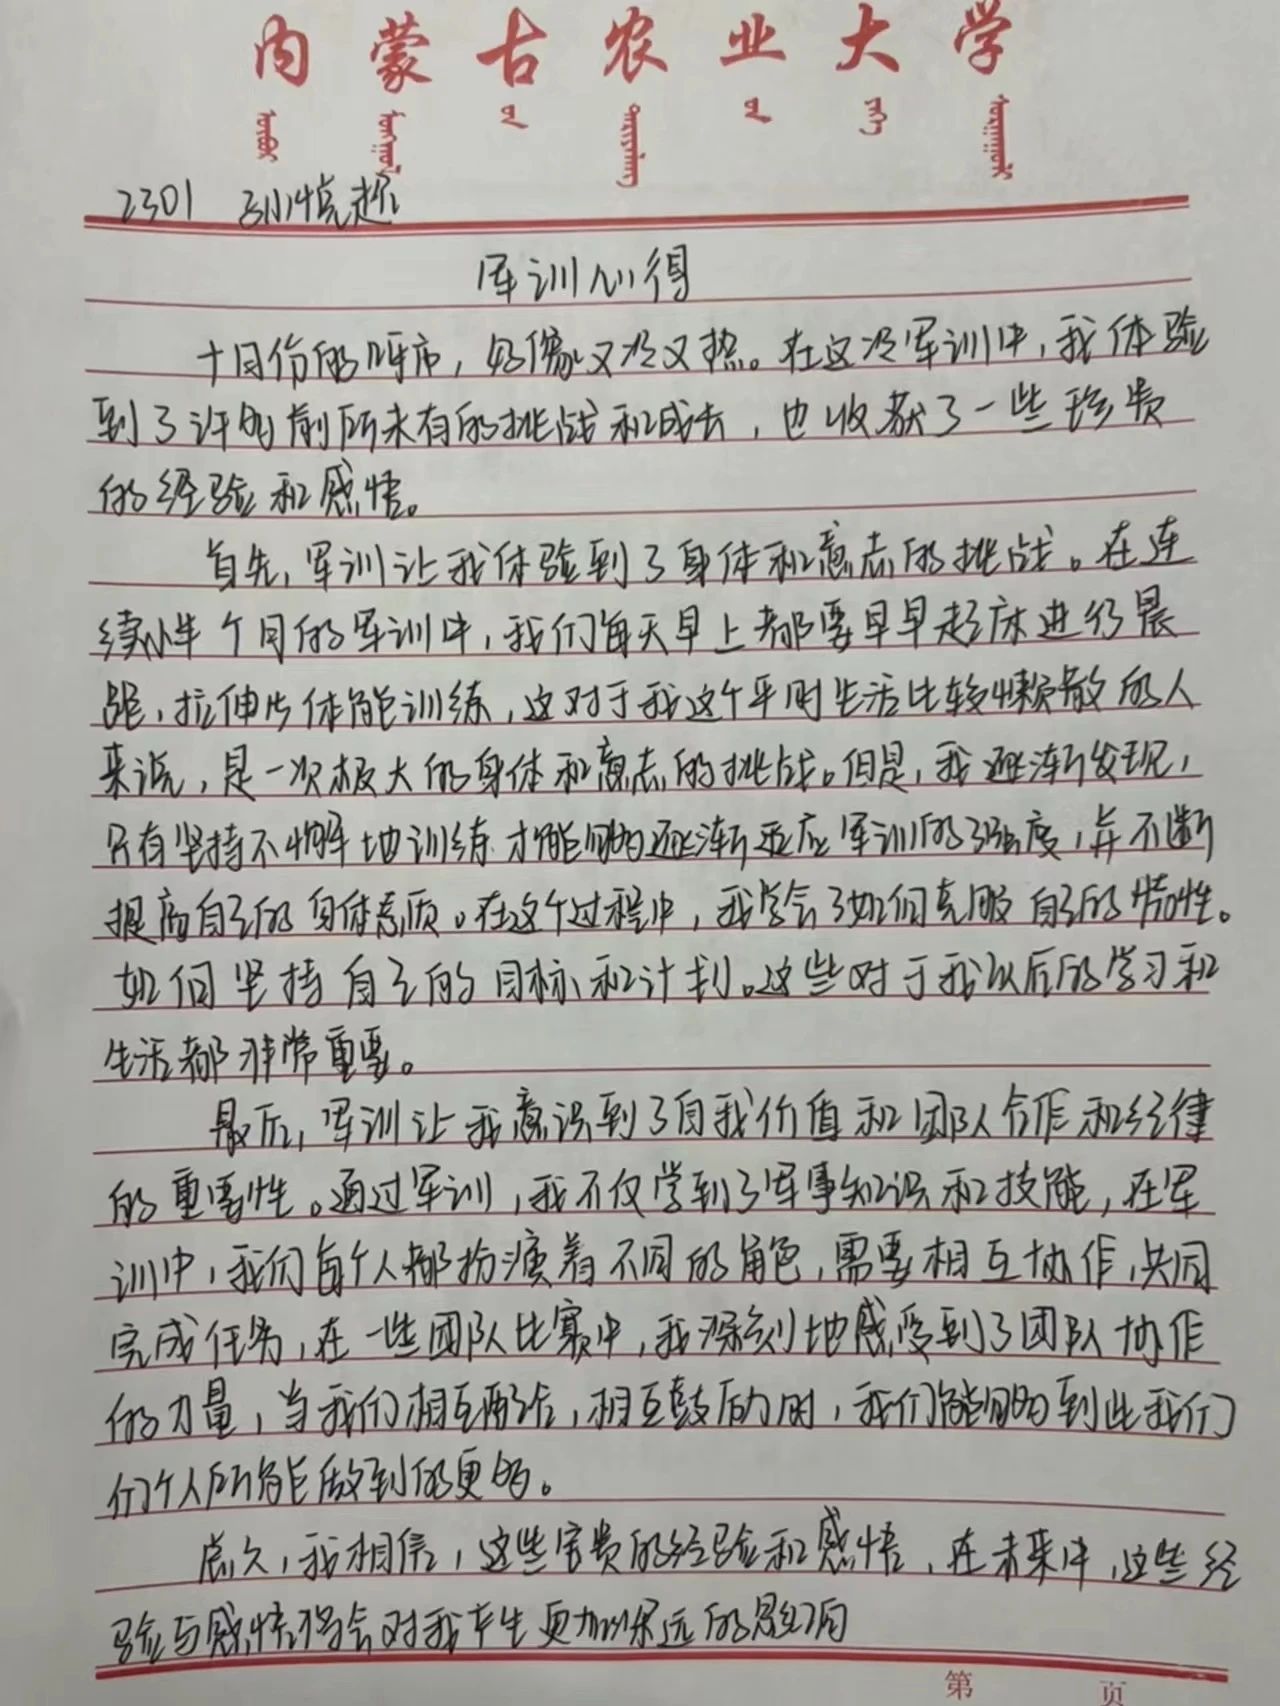 内蒙古农业大学
2301
军训心得
十月份的呼市，好像又冷又热。在这次军训中，我体验
到了许多前所未有的挑战和成长，也收获了一些珍贵
的经验和感悟。
首先，军训让我体验到了身体和意志的挑战。在连
续小半个月的军训中，我们每天早上都要早早起床进行晨
跑，拉伸步体能训练，这对于我这个平时生活比较懒散的人
来说，是一次极大的身体和意志的挑战。但是，我逐渐发现，
只有坚持不懈地训练才能够逐渐适应军训的强度，并不断
提高自己的身体素质。在这个过程中，我学会了如何克服自己的惰性。
如何坚持自己的目标和计划。这些对于我以后的学习和
生活都非常重要。
最后，军训让我意识到了自我价值和团队合作和纪律
的重要性。通过军训，我不仅学到了军事知识和技能，在军
训中，我们每个人都扮演着不同的角色，需要相互协作，共同
完成任务，在一些团队比赛中，我深刻地感受到了团队协作
的力量，当我们相互配合，相互鼓励时，我们能够做到比我们
们个人所能做到的更多。
总之，我相信，这些宝贵的经验和感悟，在未来中，这些经
验与感悟将会对我产生更加深远的影响
第 页